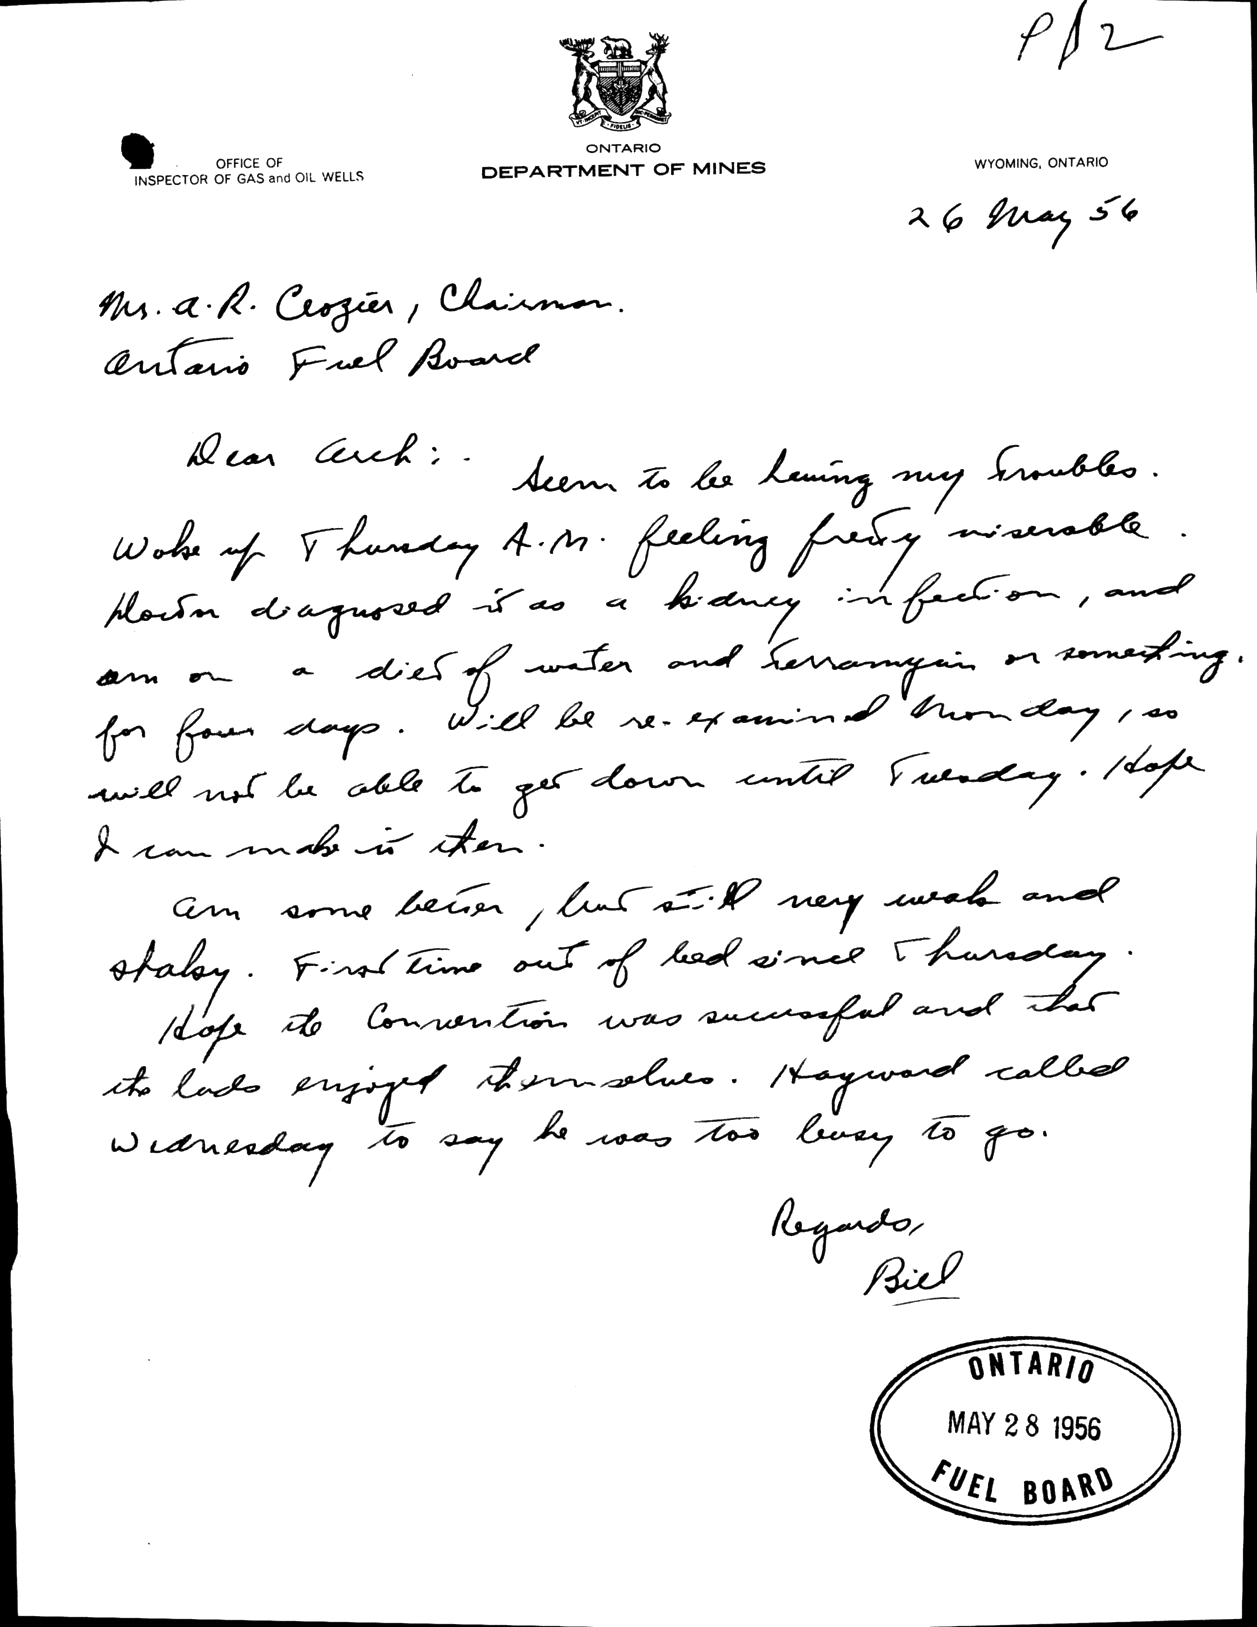 P/2
UT INCEPIT
FIDELIS
SIC PERMANET
ONTARIO
DEPARTMENT OF MINES
OFFICE OF
INSPECTOR OF GAS and OIL WELLS
WYOMING, ONTARIO
26 May 56
Mr. A. R. Crozier, Chairman.
Ontario Fuel Board
Dear Arch:.
Seem to be having my troubles.
Woke up Thursday A.M. feeling pretty miserable.
Doctor diagnosed it as a kidney infection, and
am on a diet of water and terramycin or something.
for four days. Will be re-examined Monday, so
will not be able to get down until Tuesday. Hope
I can make it then.
Am some better, but still very weak and
shaky. First time out of bed since Thursday.
Hope the Convention was successful and that
the lads enjoyed themselves. Hayward called
Wednesday to say he was too busy to go.
Regards,
Bill
ONTARIO
MAY 28 1956
FUEL BOARD